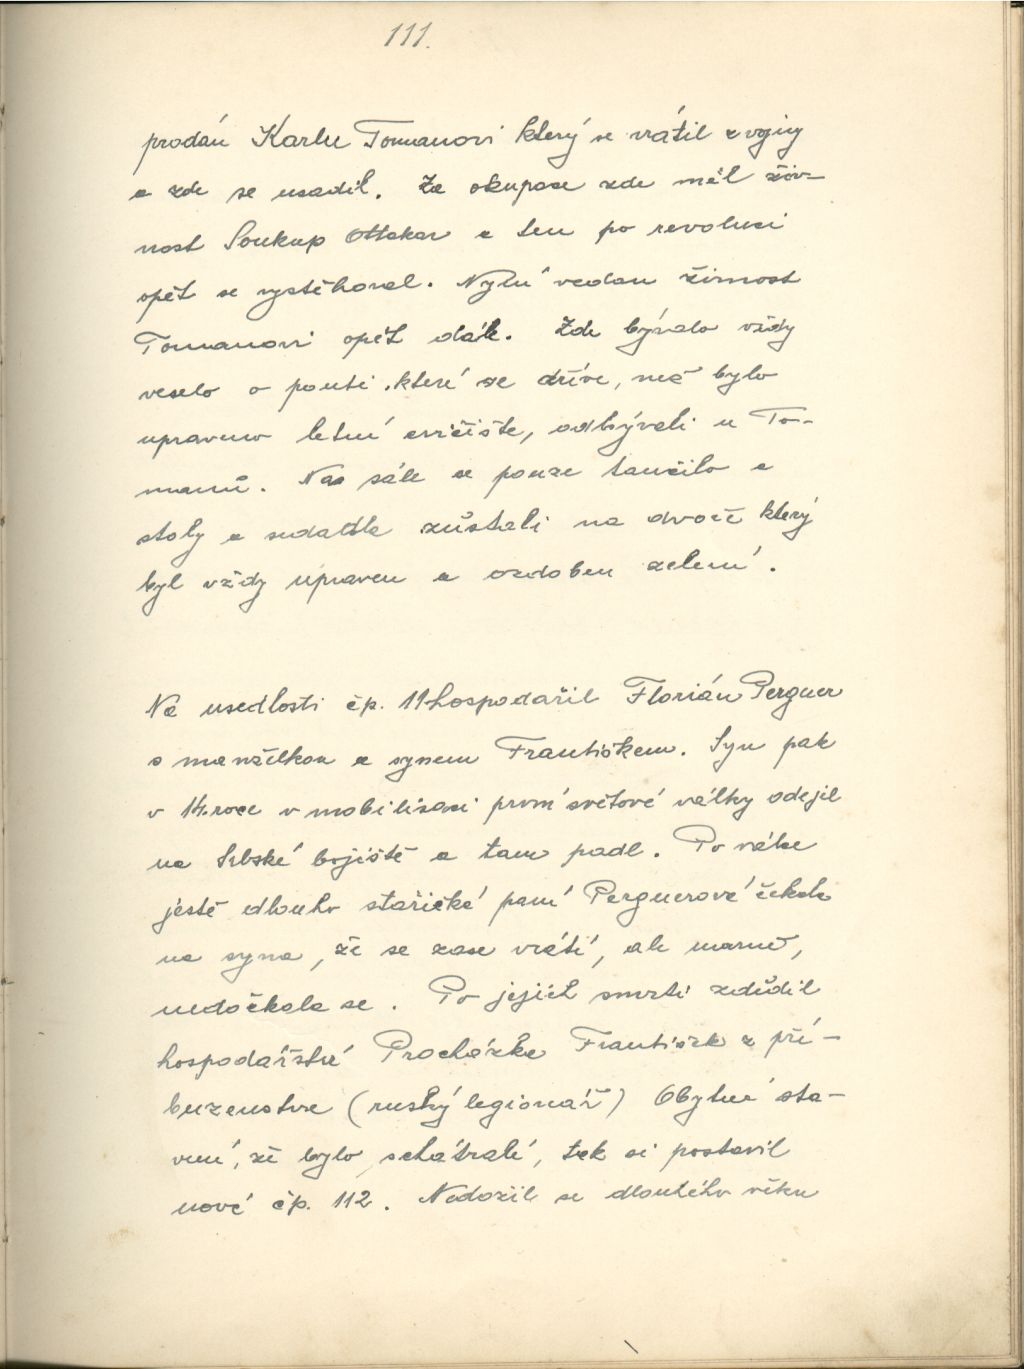 111.
prodán Karlu Tomanovi který se vrátil z vojny
a zde se usadil. Za okupace zde měl živ-
nost Soukup Ottokar a ten po revoluci
opět se vystěhoval. Nyní vedou živnost
Tomanovi opět dále. Zde bývalo vždy
veselo o pouti které se dříve, než bylo
upraveno letní cvičiště, odbývali u To-
manů. Na sále se pouze tančilo a
stoly a sedadla zůstali na dvoře který
byl vždy upraven a ozdoben zelení.
Na usedlosti čp. 11 hospodařil Florián Perguer
s manželkou a synem Františkem. Syn pak
v 14. roce v mobilisaci první světové války odejel
na Srbské bojiště a tam padl. Po válce
ještě dlouho stařičká paní Perguerová čekala
na syna, že se zase vrátí, ale marně,
nedočkala se. Po jejich smrti zdědil
hospodářství Procházka František z pří-
buzenstva (ruský legionář) Obytné sta-
vení, že bylo schátralé, tak si postavil
nové čp. 112. Nedožil se dlouhého věku